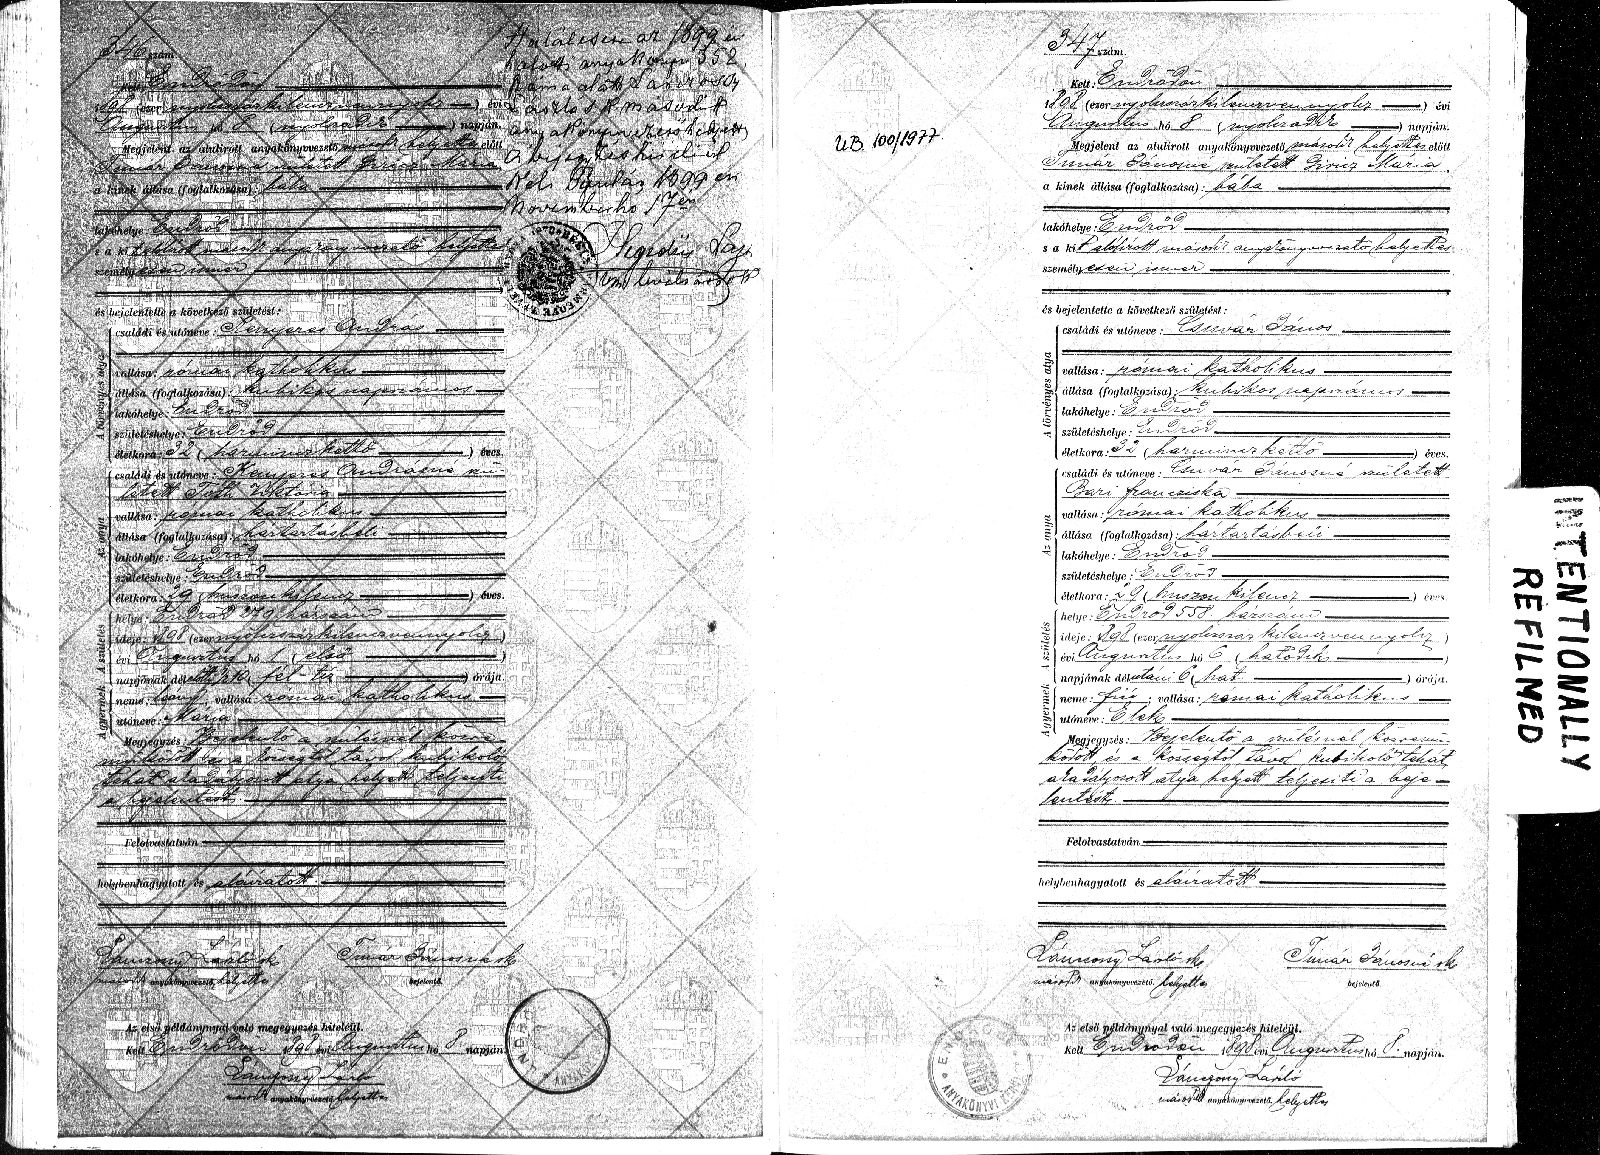 346 szám.
Kelt Endrődön
1898 (ezernyolcszázkilencvennyolc) évi
Augusztus hó 8 (nyolcadik) napján.
Megjelent az alulírott anyakönyvvezető másodk helyettes előtt
Timár Jánosné született Mária
a kinek állása (foglalkozása): bába
lakóhelye: Endrőd
s a kit alulírott másodk anyakönyvvezető helyettes
személyesen ismer
és bejelentette a következő születést:
A törvényes atya
családi és utóneve: Kenyeres András
vallása: római katholikus
állása (foglalkozása): kubikos napszámos
lakóhelye: Endrőd
születéshelye: Endrőd
életkora: 32 (harminczkettő) éves.
Az anya
családi és utóneve: Kenyeres Andrásné szü-
letett Tóth Viktória
vallása: római katholikus
állása (foglalkozása): háztartásbeli
lakóhelye: Endrőd
születéshelye: Endrőd
életkora: 29 (huszonkilencz) éves.
A születés
helye: Endrőd 279 házszám
ideje: 1898 (ezernyolcszázkilencvennyolcz)
évi Augusztus hó 1 (első)
napjának délelőtti fél tíz órája.
A gyermek
neme: leány; vallása: római katholikus
utóneve: Mária
Megjegyzés: Bejelentő a szülésnél közre-
működött és a községtől távol kubikoló
tehát akadályozott atya helyett teljesíti
a bejelentést.
Felolvastatván
helybenhagyatott és aláíratott.
Lánczony László sk
másodk anyakönyvvezető. helyettes
Timár Jánosné sk
bejelentő.
Az első példánynyal való megegyezés hiteléül.
Kelt Endrődön 1898 évi Augusztus hó 8. napján
Lánczony László
másodk anyakönyvvezető. helyettes
1899 én
halotti anyakönyv 352
szám alatt Lánczony
László k. másod k
anyakönyvvezető helyett
a bejegyzés hiteléül
Kelt Gyulán 1899 én
November hó 17 én
UB. 100/1977.
347 szám.
Kelt Endrődön
1898 (ezernyolcszázkilencvennyolcz) évi
Augusztus hó 8 (nyolcadik) napján.
Megjelent az alulírott anyakönyvvezető másodk helyettes előtt
Timár Jánosné született Mária
a kinek állása (foglalkozása): bába
lakóhelye: Endrőd
s a kit alulírott másodk anyakönyvvezető helyettes
személyesen ismer
és bejelentette a következő születést:
A törvényes atya
családi és utóneve: Csuvár János
vallása: római katholikus
állása (foglalkozása): kubikos napszámos
lakóhelye: Endrőd
születéshelye: Endrőd
életkora: 32 (harminczkettő) éves.
Az anya
családi és utóneve: Csuvár Jánosné született
Bari Francziska
vallása: római katholikus
állása (foglalkozása): háztartásbeli
lakóhelye: Endrőd
születéshelye: Endrőd
életkora: 29 (huszonkilencz) éves.
A születés
helye: Endrőd 558 házszám
ideje: 1898 (ezernyolcszázkilencvennyolcz)
évi Augusztus hó 6 (hatodik)
napjának délutáni 6 (hat) órája.
A gyermek
neme: fiú; vallása: római katholikus
utóneve: Elek
Megjegyzés: Bejelentő a szülésnél közremű-
ködött és a községtől távol kubikoló tehát
akadályozott atya helyett teljesíti a beje-
lentést.
Felolvastatván
helybenhagyatott és aláíratott
Lánczony László sk
másodk anyakönyvvezető. helyettes
Timár Jánosné sk
bejelentő.
Az első példánynyal való megegyezés hiteléül.
Kelt Endrődön 1898 évi Augusztus hó 8. napján.
Lánczony László
másodk anyakönyvvezető. helyettes
INTENTIONALLY
REFILMED